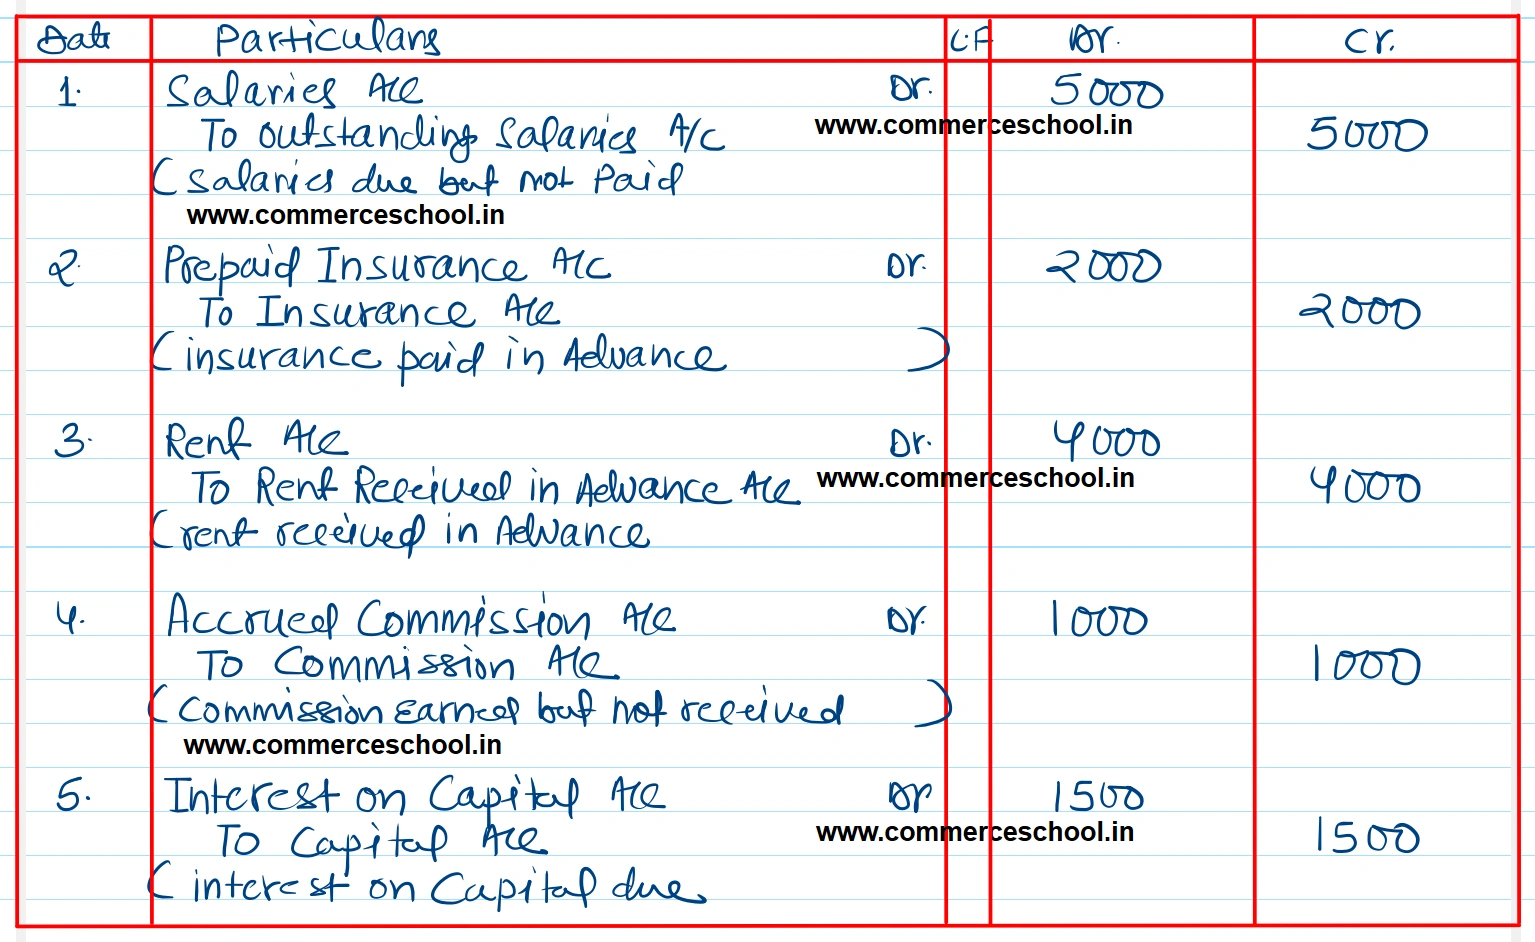 Date Particulars L.F Dr. Cr.
1. Salaries A/c Dr. 5000
To outstanding Salaries A/c www.commerceschool.in 5000
(Salaries due but not Paid
www.commerceschool.in
2. Prepaid Insurance A/c Dr. 2000
To Insurance A/c 2000
(insurance paid in Advance )
3. Rent A/c Dr. 4000
To Rent Received in Advance A/c www.commerceschool.in 4000
(rent received in Advance
4. Accrued Commission A/c Dr. 1000
To Commission A/c 1000
(Commission Earned but not received )
www.commerceschool.in
5. Interest on Capital A/c Dr 1500
To Capital A/c www.commerceschool.in 1500
(interest on Capital due